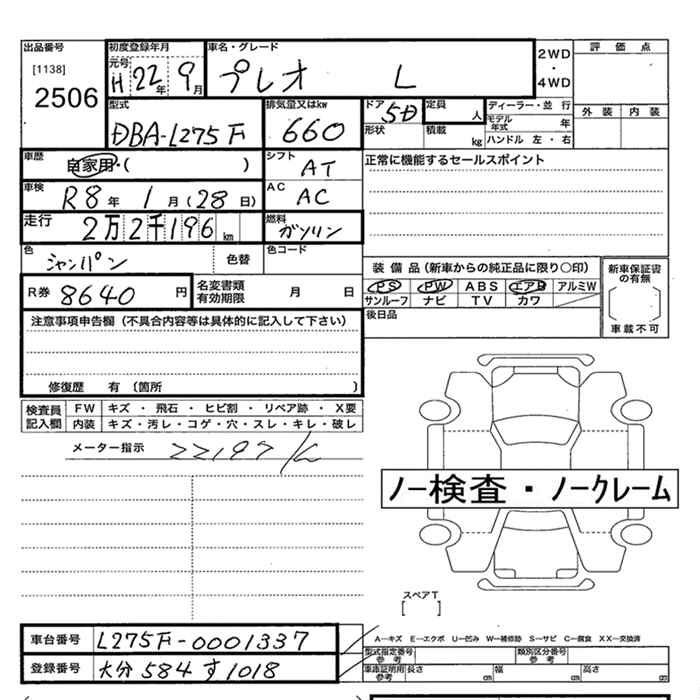 出品番号 初度登録年月 車名・グレード 2WD 評価点
[1138] 元号 H 22年 9月 プレオ L ・
2506 4WD
型式 排気量又はkw ドア 5D 定員 人 ディーラー・並行 外装 内装
DBA-L275F 660 形状 積載 kg モデル年式 年
ハンドル 左・右
車歴 自家用・( ) シフト AT 正常に機能するセールスポイント
車検 R8年 1月(28日) AC AC
走行 2万2千196km 燃料 ガソリン
色 シャンパン 色替 色コード
装備品(新車からの純正品に限り〇印) 新車保証書の有無
R券 8640円 名変書類有効期限 月 日 PS PW ABS エアB アルミW
サンルーフ ナビ TV カワ
車載不可
注意事項申告欄(不具合内容等は具体的に記入して下さい) 後日品
修復歴 有(箇所 )
検査員記入欄 FW キズ・飛石・ヒビ割・リペア跡・X要
内装 キズ・汚レ・コゲ・穴・スレ・キレ・破レ
メーター指示 22197K
ノー検査・ノークレーム
スペアT
[ ]
車台番号 L275F-0001337 A…キズ E…エクボ U…凹み W…補修跡 S…サビ C…腐食 XX…交換済
型式指定番号参考 類別区分番号参考
登録番号 大分 584 す 1018 車庫証明用参考 長さ cm 幅 cm 高さ cm